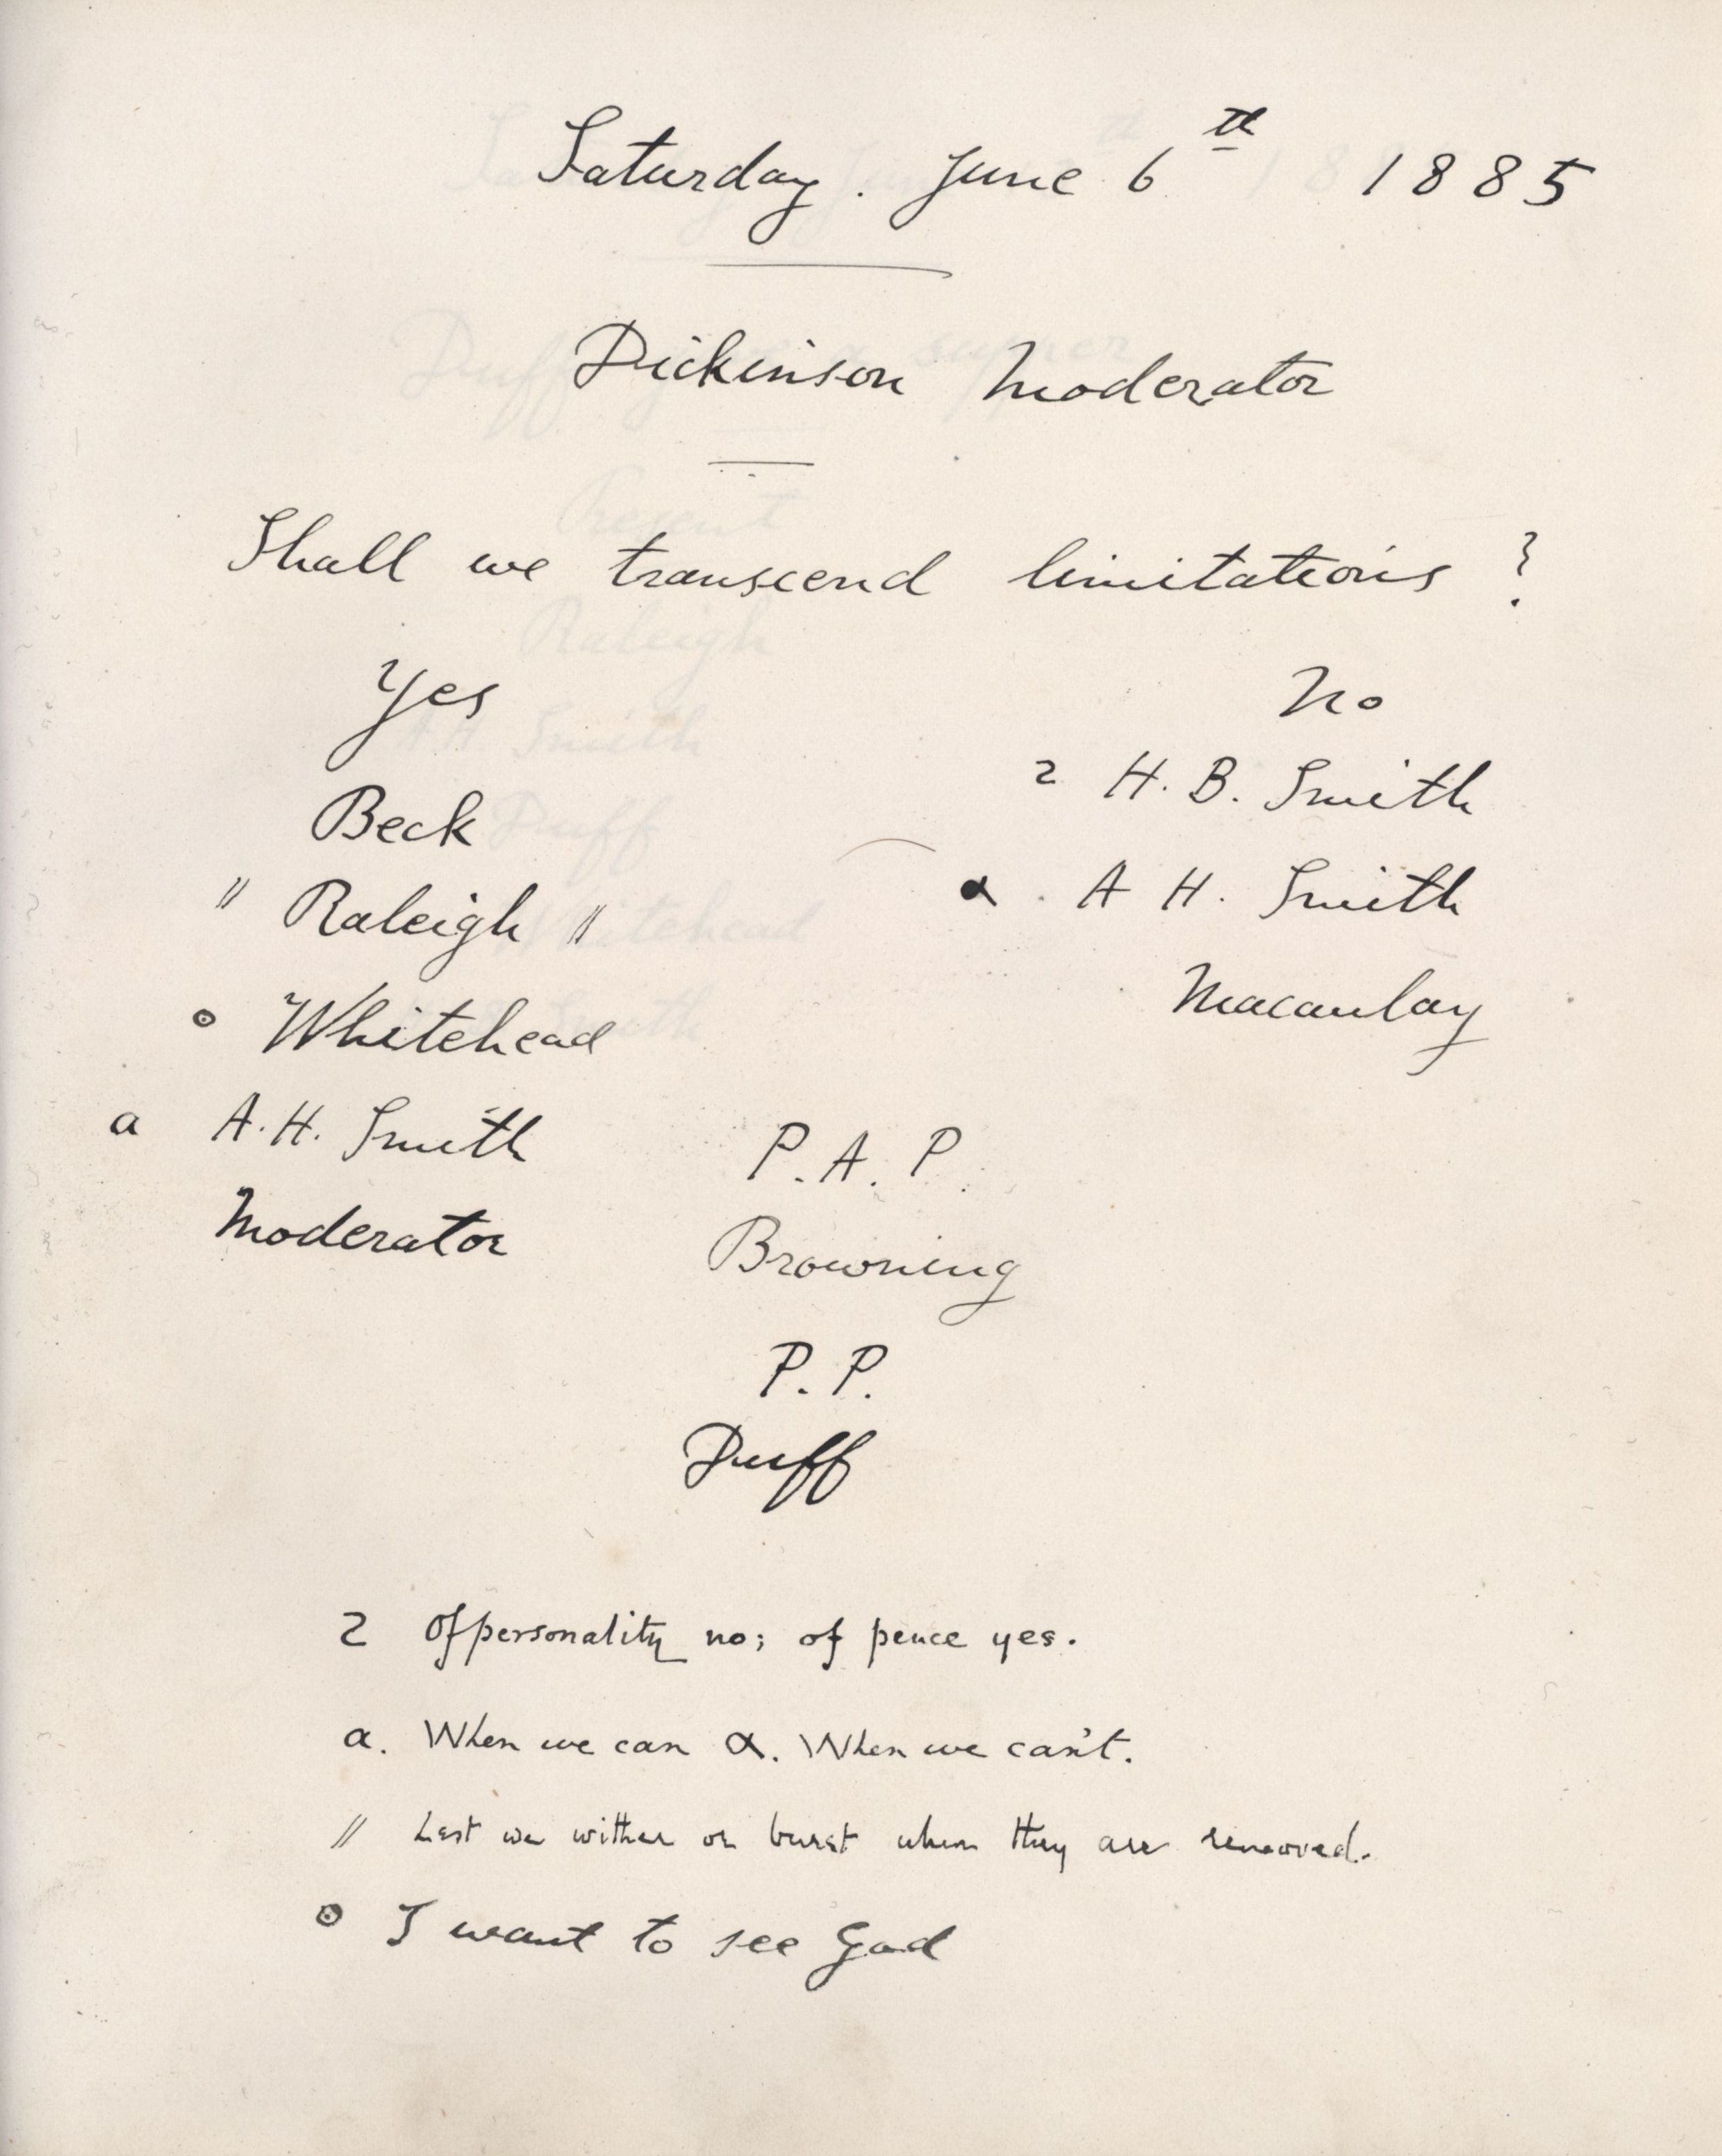 Saturday. June 6th 1885
Dickinson Moderator
Shall we transcend limitations?
Yes
No
Beck
2 H. B. Smith
" Raleigh "
α . A H. Smith
⊙ Whitehead
Macaulay
a A. H. Smith
Moderator
P. A. P.
Browning
P. P.
Duff
2 Of personality no; of peace yes.
a. When we can α. When we can't.
// Lest we wither or burst when they are removed.
⊙ I want to see God